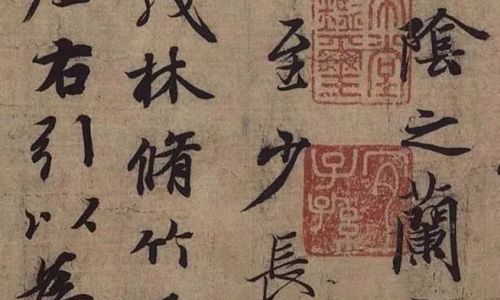 陰之蘭
至少長
茂林脩竹
右引以為